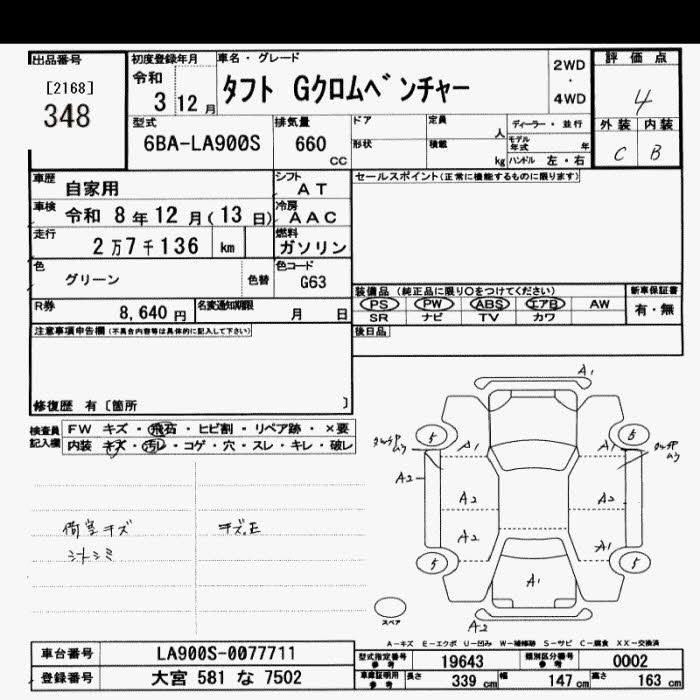 出品番号
[2168]
348
初度登録年月
令和
3 12 月
車名・グレード
タフト Gクロムベンチャー
2WD
・
4WD
評価点
4
外装 内装
C B
型式
6BA-LA900S
排気量
660
cc
ドア
定員
人
ディーラー・並行
形状
積載
kg
モデル年式 年
ハンドル 左・右
車歴
自家用
シフト
AT
セールスポイント(正常に機能するものに限ります)
車検
令和 8 年 12 月( 13 日)
冷房
AAC
走行
2 万 7 千 136 km
燃料
ガソリン
色
グリーン
色替
色コード
G63
装備品 (純正品に限り○をつけてください)
新車保証書
PS PW ABS エアB AW
有・無
SR ナビ TV カワ
R券
8,640 円
名変通知期限
月 日
後日品
注意事項申告欄(不具合内容等は具体的に記入して下さい)
修復歴 有〔箇所 〕
検査員記入欄
FW キズ・飛石・ヒビ割・リペア跡・×要
内装 キズ・汚レ・コゲ・穴・スレ・キレ・破レ
荷室キズ
シートシミ
キズ,E
A1
5 5
A1 A1
A2
A2 A2
A2 A1
5 5
A1
A2
スペア
A-キズ E-エクボ U-凹み W-補修跡 S-サビ C-腐食 XX-交換済
車台番号 LA900S-0077711
型式指定番号 参考 19643
類別区分番号 参考 0002
登録番号 大宮 581 な 7502
車庫証明用 参考 長さ 339 cm 幅 147 cm 高さ 163 cm